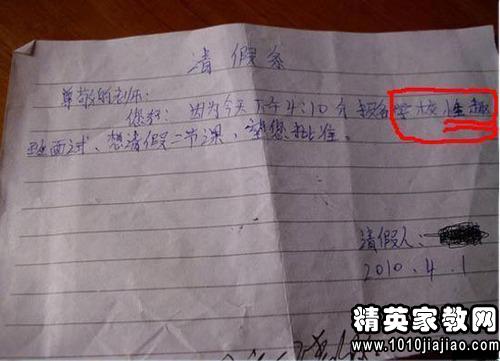 请假条
尊敬的老师:
您好:因为今天下午4:10分报名学校性趣
班面试、想请假二节课,望您批准。
请假人:
2010.4.1
精英家教网
www.1010jiajiao.com